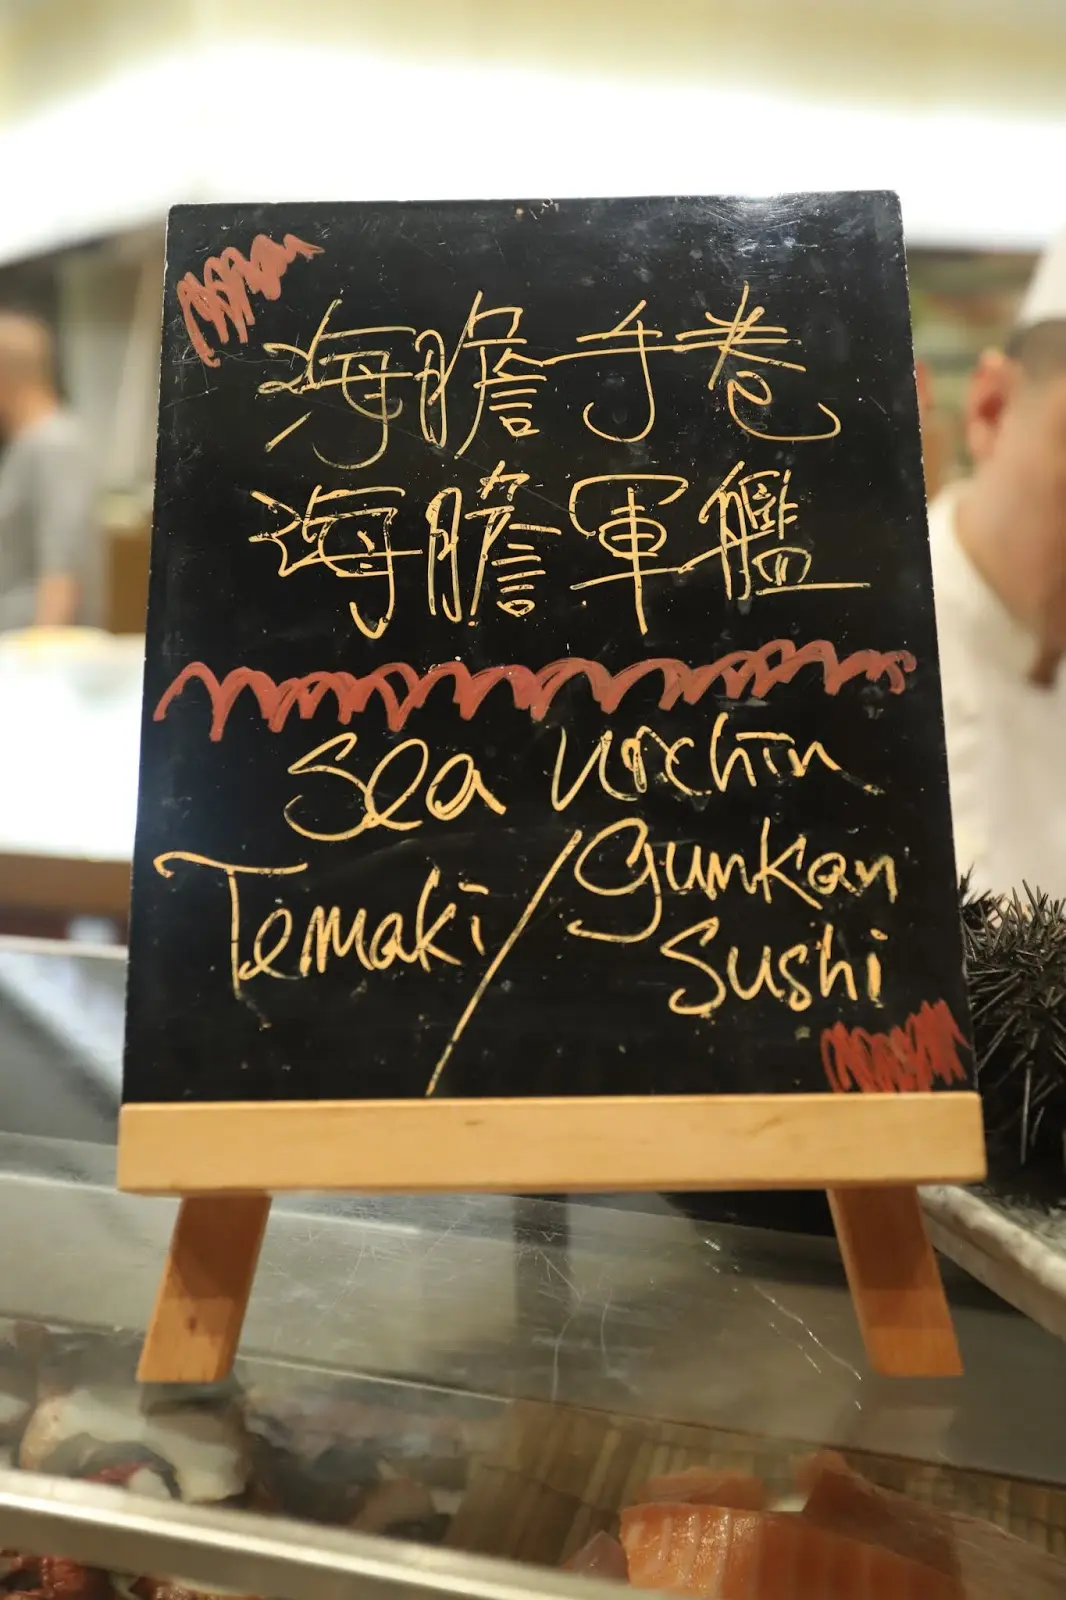 海膽手卷
海膽軍艦
Sea Urchin
Temaki/Gunkan
Sushi